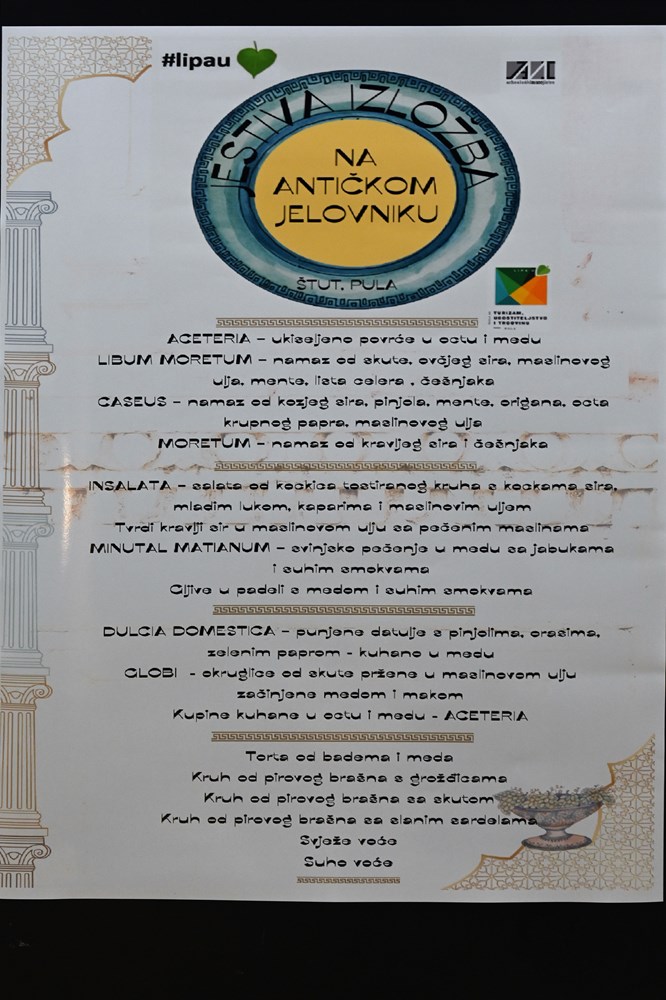 #lipau
JESTIVA IZLOŽBA
NA
ANTIČKOM
JELOVNIKU
ŠTUT, PULA
TURIZAM,
UGOSTITELJSTVO
I TRGOVINU
ACETERIA – ukiseljeno povrće u octu i medu
LIBUM MORETUM – namaz od skute, ovčjeg sira, maslinovog
ulja, mente, lista celera , češnjaka
CASEUS – namaz od kozjeg sira, pinjola, mente, origana, octa
krupnog papra, maslinovog ulja
MORETUM – namaz od kravljeg sira i češnjaka
INSALATA – salata od kockica tostiranog kruha s kockama sira,
mladim lukom, kaparima i maslinovim uljem
Tvrdi kravlji sir u maslinovom ulju sa pečenim maslinama
MINUTAL MATIANUM – svinjsko pečenje u medu sa jabukama
i suhim smokvama
Gljive u padeli s medom i suhim smokvama
DULCIA DOMESTICA – punjene datulje s pinjolima, orasima,
zelenim paprom - kuhano u medu
GLOBI - okruglice od skute pržene u maslinovom ulju
začinjene medom i makom
Kupine kuhane u octu i medu - ACETERIA
Torta od badema i meda
Kruh od pirovog brašna s grožđicama
Kruh od pirovog brašna sa skutom
Kruh od pirovog brašna sa slanim sardelama
Svježe voće
Suho voće